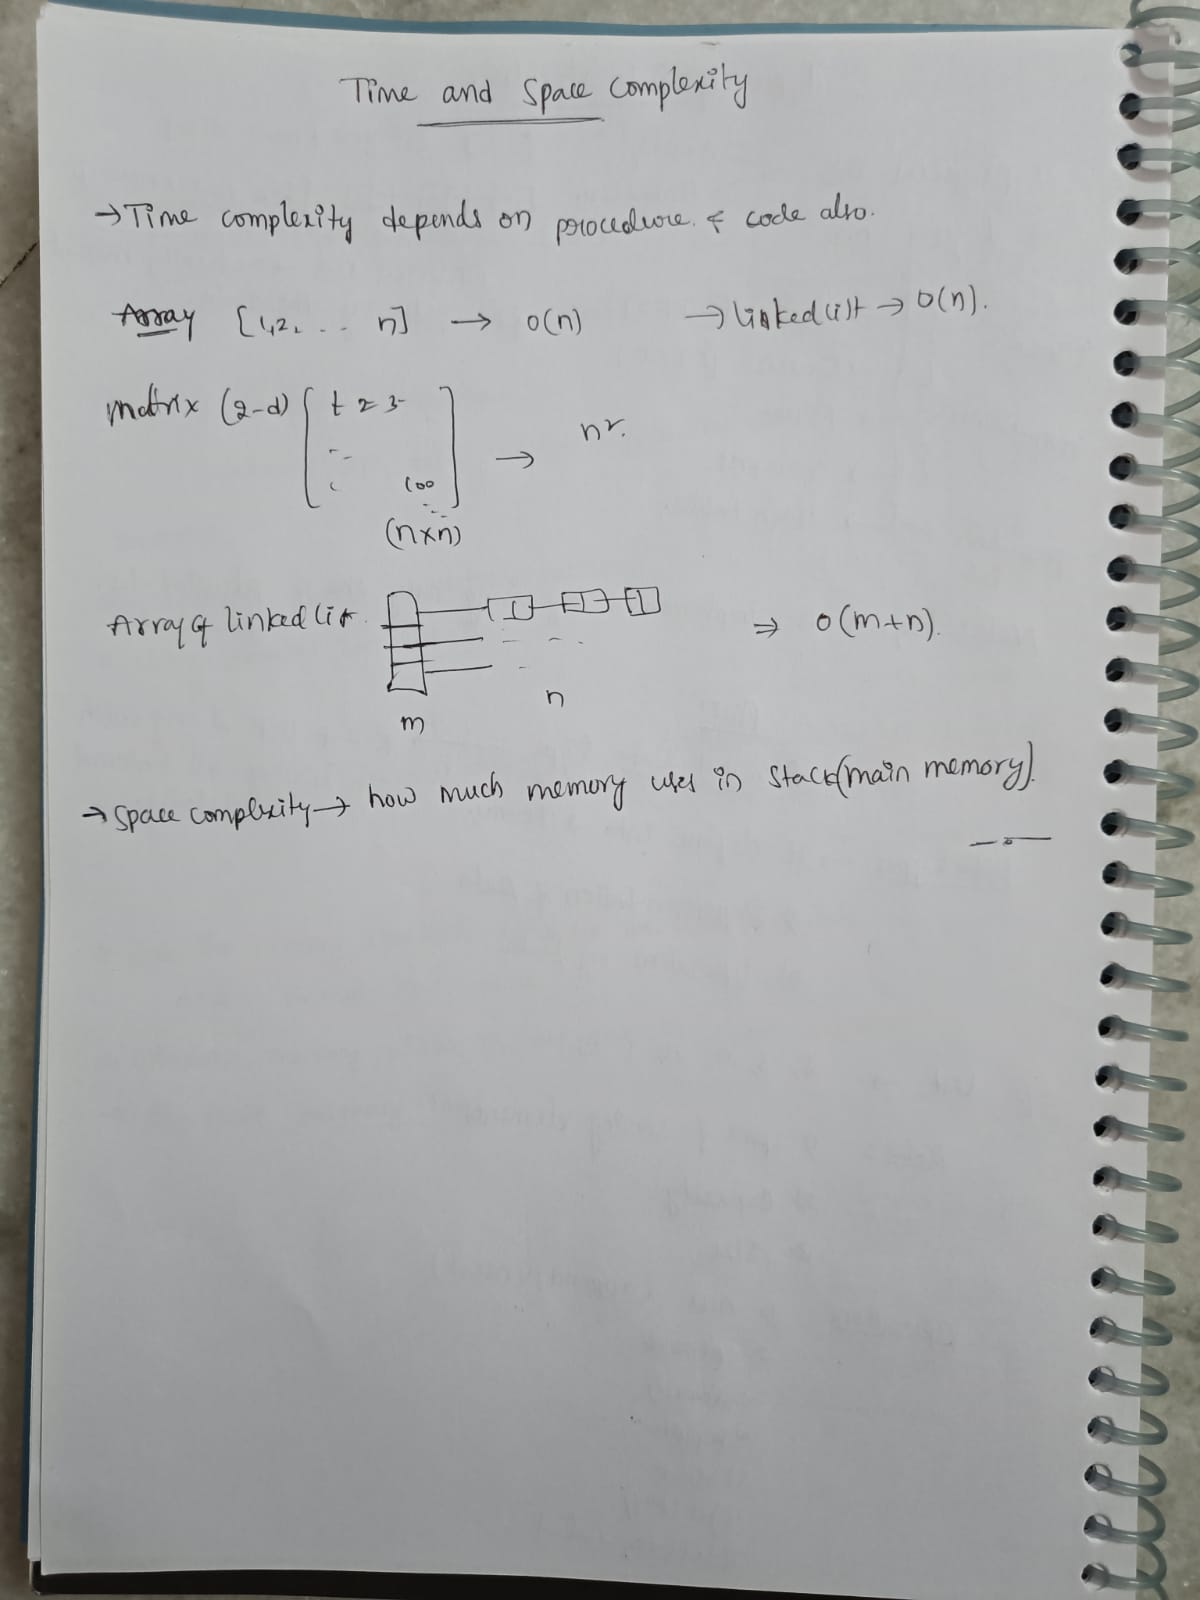 Time and Space Complexity
→ Time complexity depends on procedure & code also.
Array [1,2, .. n] → O(n) → linked list → O(n).
matrix (2-d) [ 1 2 3
100 ] → n².
(n×n)
Array of linked list. ⇒ O(m+n).
n
m
→ Space complexity → how much memory uses in Stack(main memory).